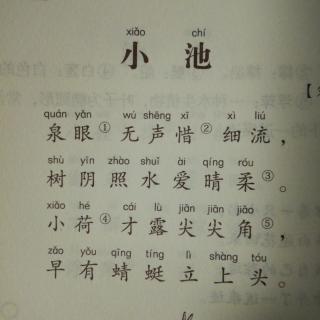 xiǎo chí
小 池
【
quán yǎn wú shēng xī xì liú
泉眼①无声惜②细流，
shù yīn zhào shuǐ ài qíng róu
树阴照水爱晴柔③。
xiǎo hé cái lù jiān jiān jiǎo
小荷④才露尖尖角⑤，
zǎo yǒu qīng tíng lì shàng tóu
早有蜻蜓立上头。